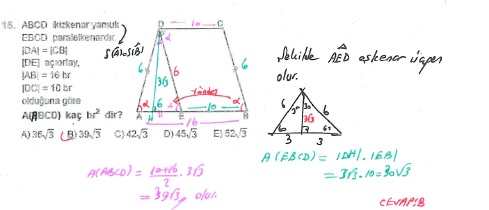 15. ABCD ikizkenar yamuk
EBCD paralelkenardır.
|DA| = |CB|
[DE] açıortay,
|AB| = 16 br
|DC| = 10 br
olduğuna göre
A(ABCD) kaç br² dir?
A) 36√3 B) 39√3 C) 42√3 D) 45√3 E) 52√3
S(Â)=S(B̂)
D 10 C
6 3√3 6 6
α 6 10 α
A H E B
16
yöndeş
Şekilde AED eşkenar üçgen
olur.
6 30 6
3√3
60 60
3 3
A(EBCD) = |DH|.|EB|
= 3√3.10 = 30√3
A(ABCD) = (10+16)/2 . 3√3
= 39√3 olur.
CEVAP:B